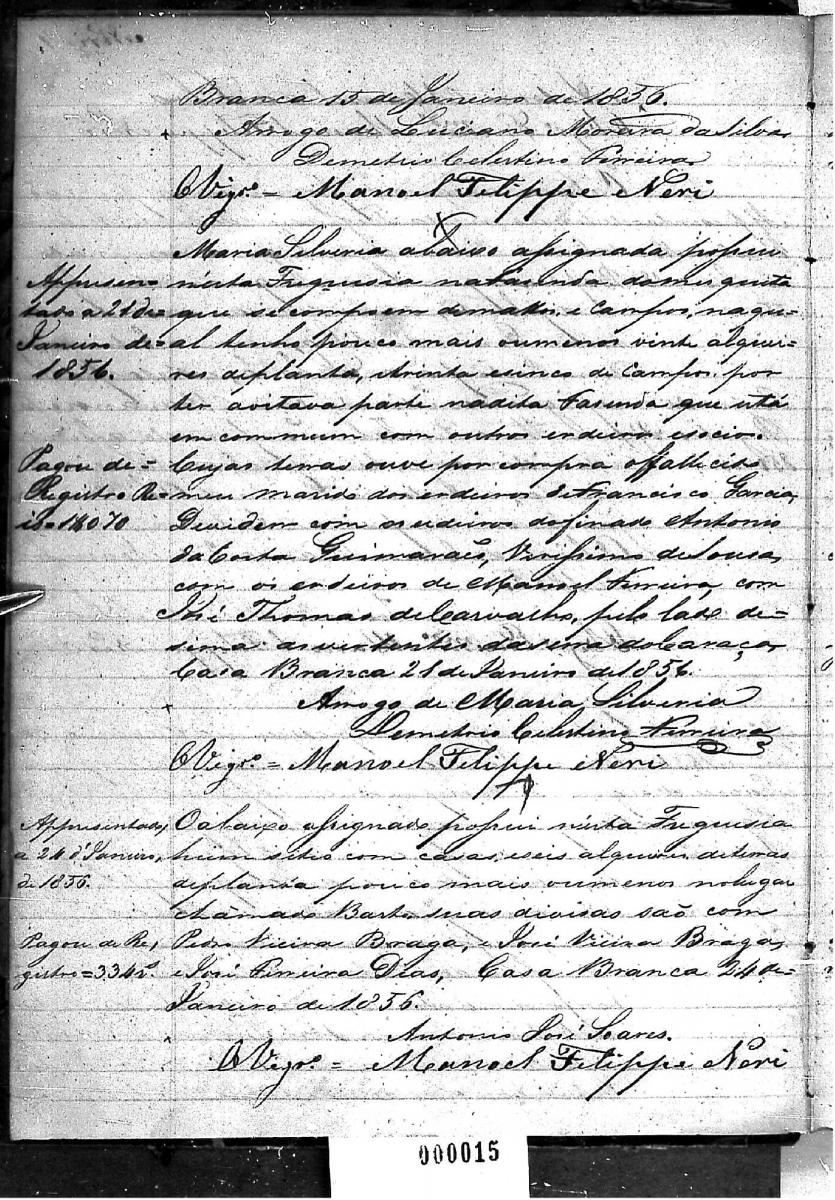 Branca 15 de Janeiro de 1856.
Arrogo de Luciano Moreira da Silva
Demetrio Celestino Ferreira
O Vigrº = Manoel Felippe Neri
Maria Silveria abaixo assignada possui
nésta Freguesia na fasenda da
que se compoem de mattos, e Campos, naqu-
al tenho pouco mais oumenos vinte alquei-
res deplanta, etrinta esinco de Campos. por
ter a oitava parte nadita Fasenda que está
em commum com outros erdeiros esocios.
Cujas terras ouve por compra o fallecido
meu marido dos erdeiros de Francisco Garcia,
Devidem com os erdeiros dofinado Antonio
da Costa Guimarães, Virissimo de Sousa,
com os erdeiros de Manoel Ferreira, com
José Thomas de Carvalho, pelo lado de-
sima as vertentes da serra do Caraça
Casa Branca 21 de Janeiro de 1856.
Arrogo de Maria Silveria
Demetrio Celestino Ferreira
O Vigrº = Manoel Felippe Neri
Appresen-
tado a 21 de=
Janeiro de=
1856.
Pagou de=
Registro Re=
is=1$070
O abaixo assignado possui nésta Freguesia
hum sitio com casas, eseis alqueires deterras
deplanta pouco mais oumenos nolugar
chamado suas divisas saõ com
Pedro Vieira Braga, e José Vieira Braga,
e José Ferreira Dias, Casa Branca 24 de=
Janeiro de 1856.
Antonio José Soares.
O Vigrº = Manoel Felippe Neri
Appresentado,
a 24 d'Janeiro,
de 1856.
Pagou de Re,
gistro=334rs.
000015